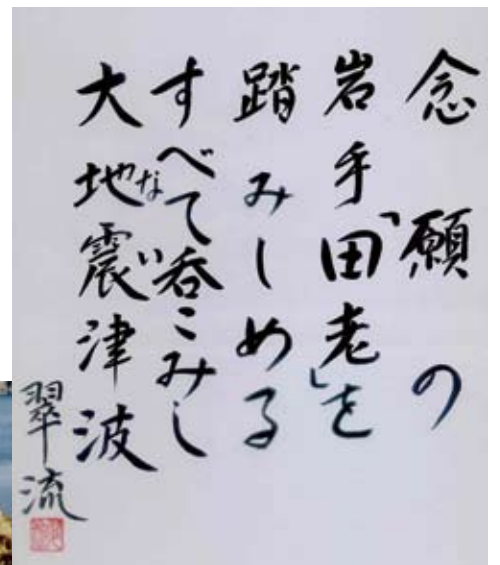 念願の
岩手「田老」を
踏みしめる
すべて呑こみし
大地震津波
なゐ
翠流